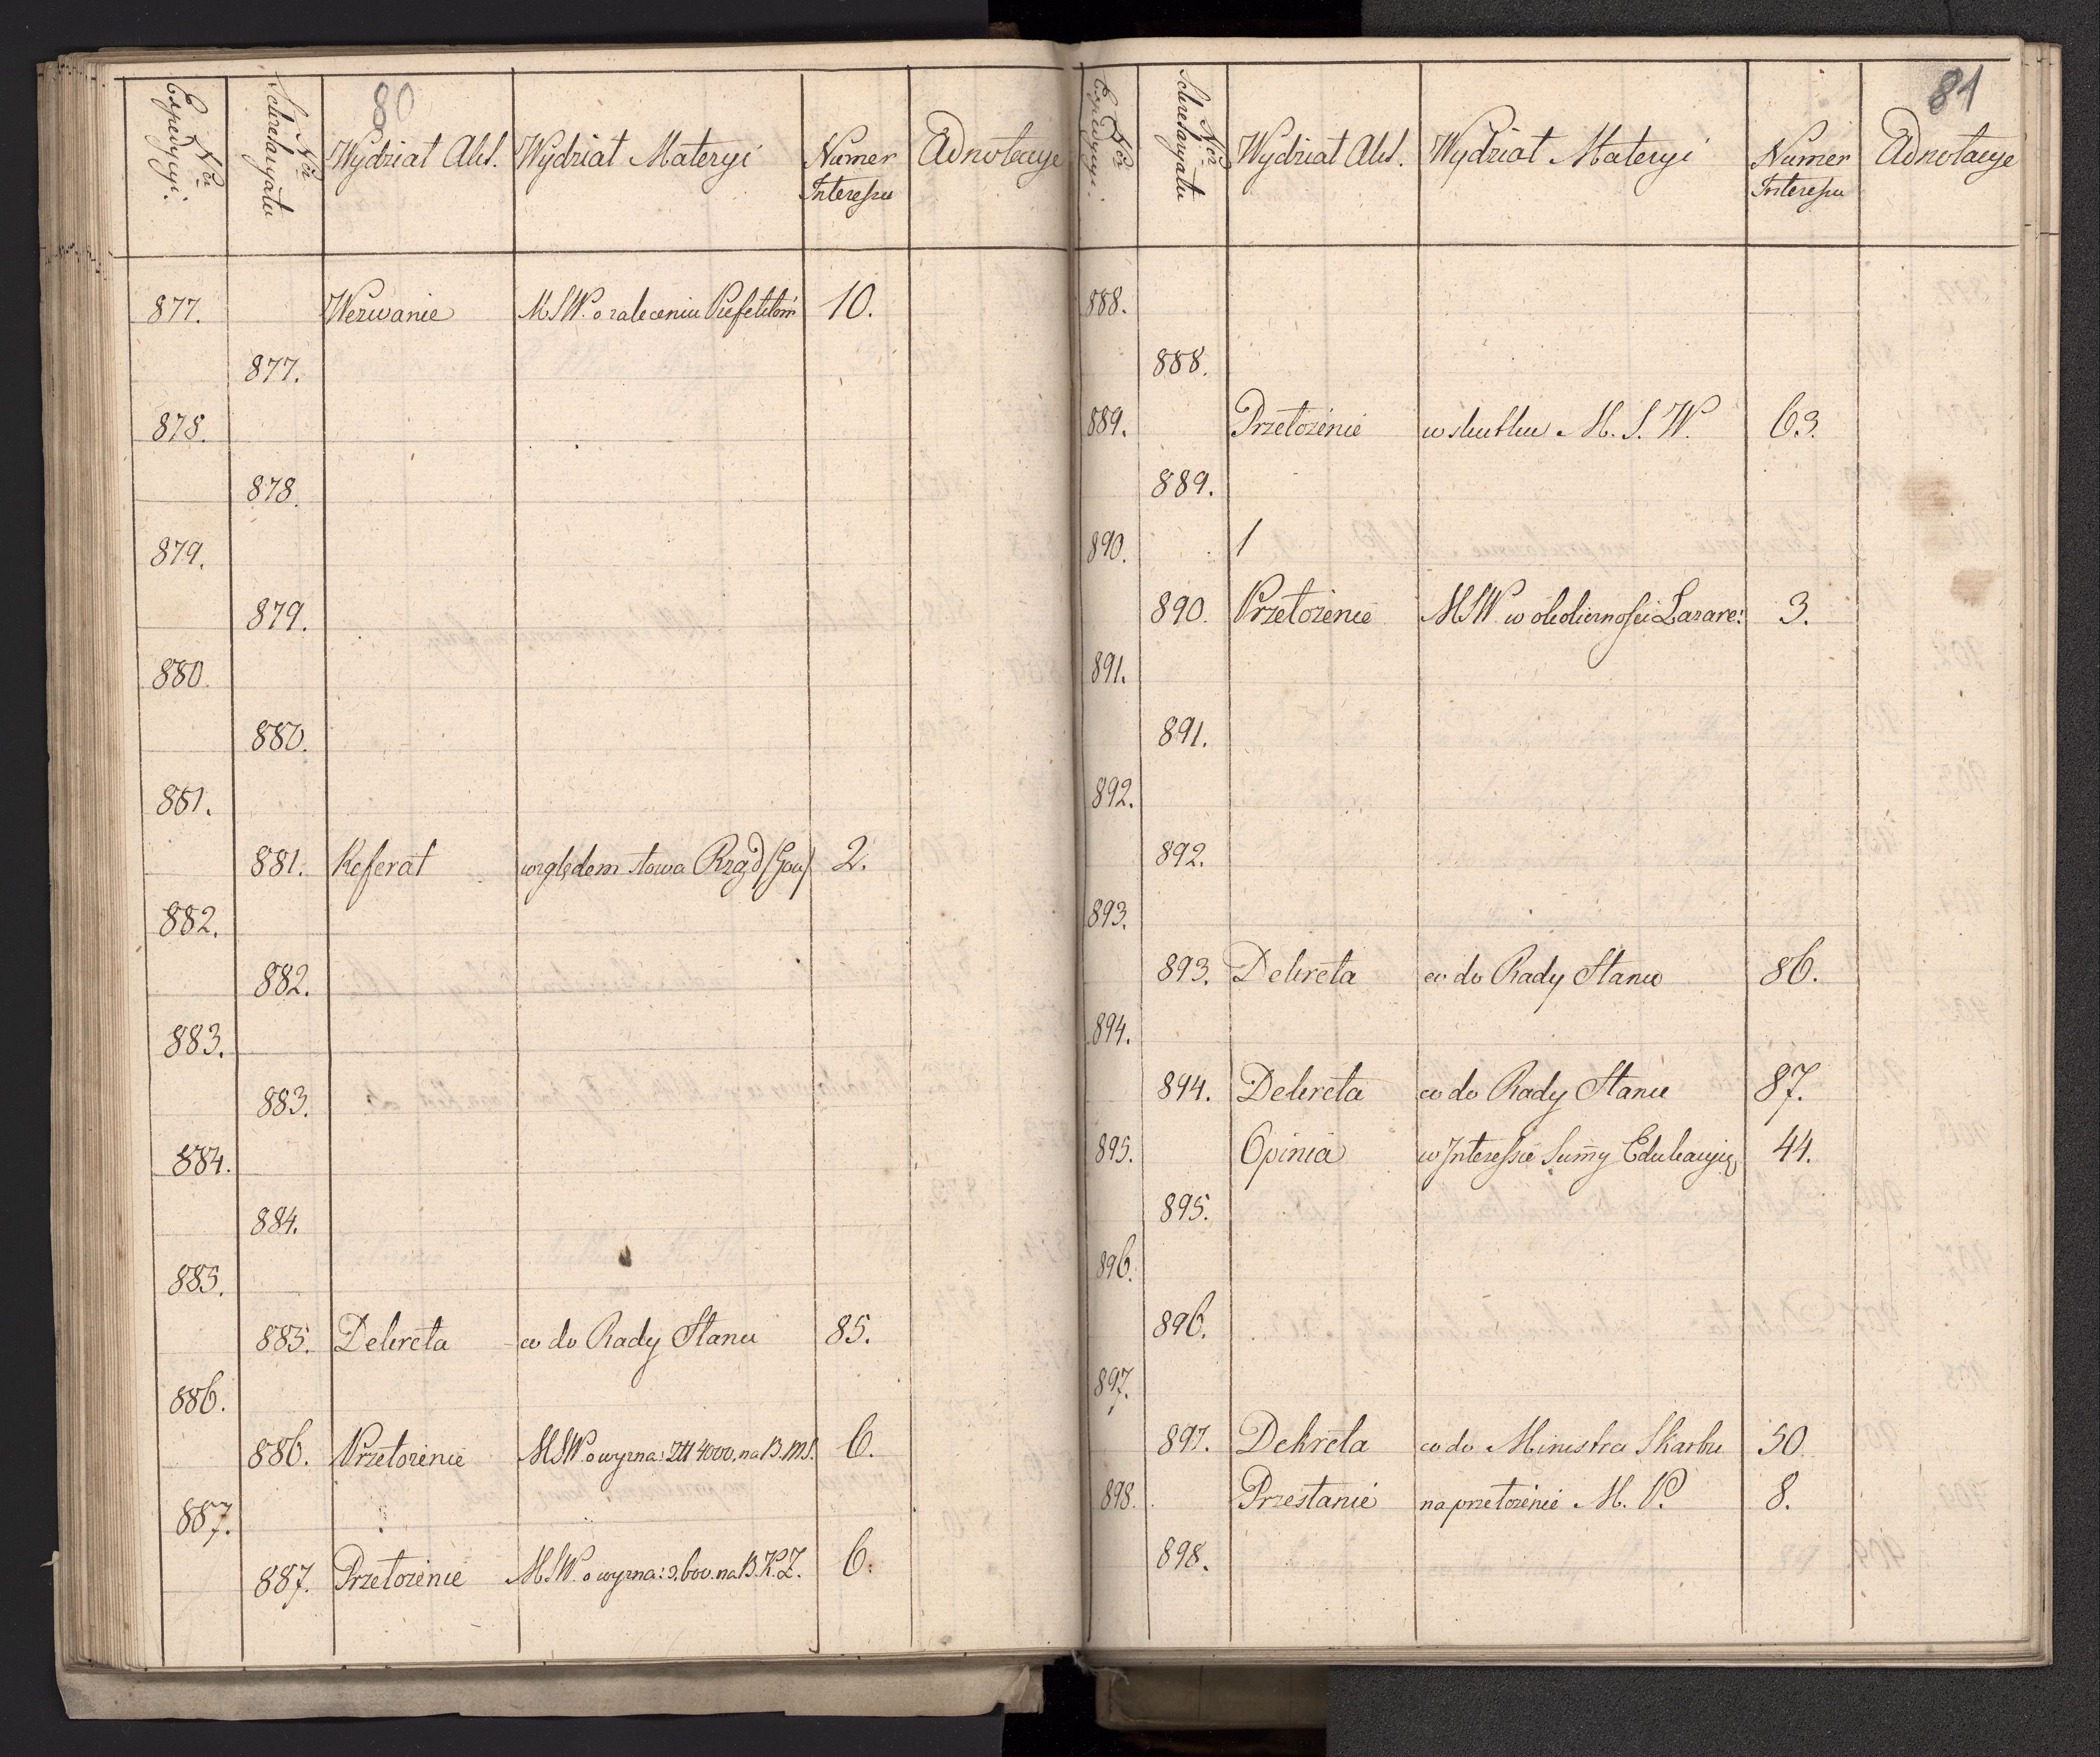 80
Nro Expedycyi.
Nro Sekretaryatu
Wydział Akt.
Wydział Materyi
Numer Interessu
Adnotacye
877. Wezwanie MSW. o zaleceniu Prefektom 10.
877.
878.
878.
879.
879.
880.
880.
881.
881. Referat względem słowa Rząd (Gou) 2.
882.
882.
883.
883.
884.
884.
885.
885. Dekreta co do Rady Stanu 85.
886.
886. Przełożenie MSW. o wyzna: Złł 4000. na B. MS. 6.
887.
887. Przełożenie MSW. o wyzna: 3,600. na B. K. Z. 6.
81
Nro Expedycyi.
Nro Sekretaryatu
Wydział Akt.
Wydział Materyi
Numer Interessu
Adnotacye
888.
888.
889. Przełożenie w skutku M. S. W. 63.
889.
890.
890. Przełożenie MSW. w okoliczności Lazare: 3.
891.
891.
892.
892.
893.
893. Dekreta co do Rady Stanu 86.
894.
894. Dekreta co do Rady Stanu 87.
895. Opinia w Interessie Sum̄y Edukacyię 44.
895.
896.
896.
897.
897. Dekreta co do Ministra Skarbu 50.
898. Przesłanie na przełożenie M. P. 8.
898.